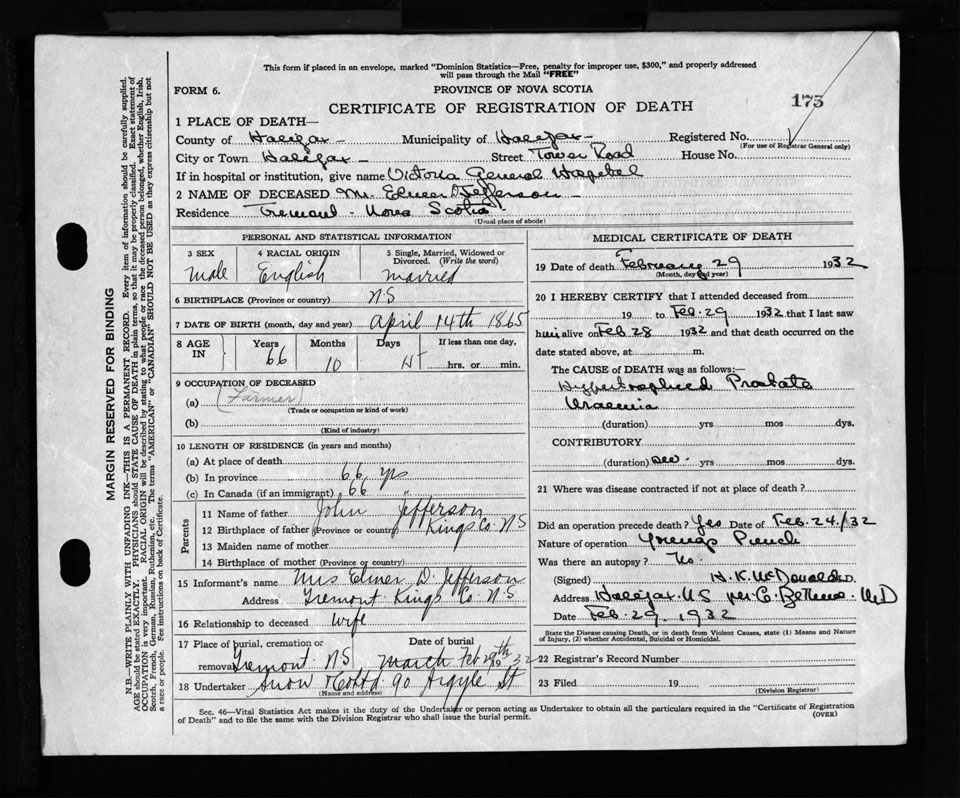 This form if placed in an envelope, marked "Dominion Statistics—Free, penalty for improper use, $300," and properly addressed
will pass through the Mail "FREE"
FORM 6. PROVINCE OF NOVA SCOTIA
CERTIFICATE OF REGISTRATION OF DEATH 175
1 PLACE OF DEATH—
County of Halifax Municipality of Halifax Registered No.
(For use of Registrar General only)
City or Town Halifax Street Tower Road House No.
If in hospital or institution, give name Victoria General Hospital
2 NAME OF DECEASED Mr. Elmer D. Jefferson
Residence Tremont - Nova Scotia
(Usual place of abode)
PERSONAL AND STATISTICAL INFORMATION
3 SEX 4 RACIAL ORIGIN 5 Single, Married, Widowed or
Divorced. (Write the word)
Male English Married
6 BIRTHPLACE (Province or country) N S
7 DATE OF BIRTH (month, day and year) April 14th 1865
8 AGE IN Years Months Days If less than one day,
66 10 hrs. or min.
9 OCCUPATION OF DECEASED
(a) (Farmer)
(Trade or occupation or kind of work)
(b)
(Kind of industry)
10 LENGTH OF RESIDENCE (in years and months)
(a) At place of death
(b) In province 66 yrs
(c) In Canada (if an immigrant) 66 "
Parents
11 Name of father John Jefferson
12 Birthplace of father (Province or country) Kings Co N S
13 Maiden name of mother
14 Birthplace of mother (Province or country)
15 Informant's name Mrs Elmer D. Jefferson
Address Tremont Kings Co N S
16 Relationship to deceased wife
17 Place of burial, cremation or Date of burial
removal Tremont N S March Feb 29th 1932
18 Undertaker Snow & Co Ltd 90 Argyle St
(Name and address)
MEDICAL CERTIFICATE OF DEATH
19 Date of death February 29 1932
(Month, day and year)
20 I HEREBY CERTIFY that I attended deceased from
19 to Feb. 29 1932 that I last saw
him alive on Feb 28 1932 and that death occurred on the
date stated above, at m.
The CAUSE OF DEATH was as follows:—
Hypertrophied Prostate
Uraemia
(duration) yrs mos dys.
CONTRIBUTORY
(duration) yrs mos dys.
21 Where was disease contracted if not at place of death?
Did an operation precede death? Yes Date of Feb. 24/32
Nature of operation Youngs Punch
Was there an autopsy? No.
(Signed) H. K. McDonald
Address Halifax N S per C. Bethune M D
Date Feb. 29. 1932
State the Disease causing Death, or in death from Violent Causes, state (1) Means and Nature
of Injury, (2) whether Accidental, Suicidal or Homicidal.
22 Registrar's Record Number
23 Filed 19
(Division Registrar)
Sec. 46—Vital Statistics Act makes it the duty of the Undertaker or person acting as Undertaker to obtain all the particulars required in the "Certificate of Registration
of Death" and to file the same with the Division Registrar who shall issue the burial permit. (OVER)
MARGIN RESERVED FOR BINDING
N.B.—WRITE PLAINLY WITH UNFADING INK—THIS IS A PERMANENT RECORD. Every item of information should be carefully supplied.
AGE should be stated EXACTLY. PHYSICIANS should STATE CAUSE OF DEATH in plain terms, so that it may be properly classified. Exact statement of
OCCUPATION is very important. RACIAL ORIGIN will be described by stating to what people or race the deceased person belonged, whether English, Irish,
Scotch, French, German, Russian, Ruthenian, etc. The terms "AMERICAN" or "CANADIAN" SHOULD NOT BE USED as they express citizenship but not
a race or people. See instructions on back of Certificate.